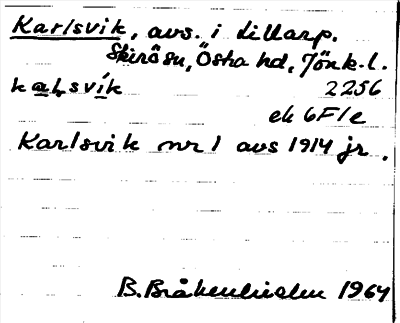 Karlsvik, avs. i Lillarp.
Skirö sn, Östra hd, Jönk. l.
kaḷsvík 2256
ek 6F/e
Karlsvik nr 1 avs 1914 jr.
B. Bråkenhielm 1964